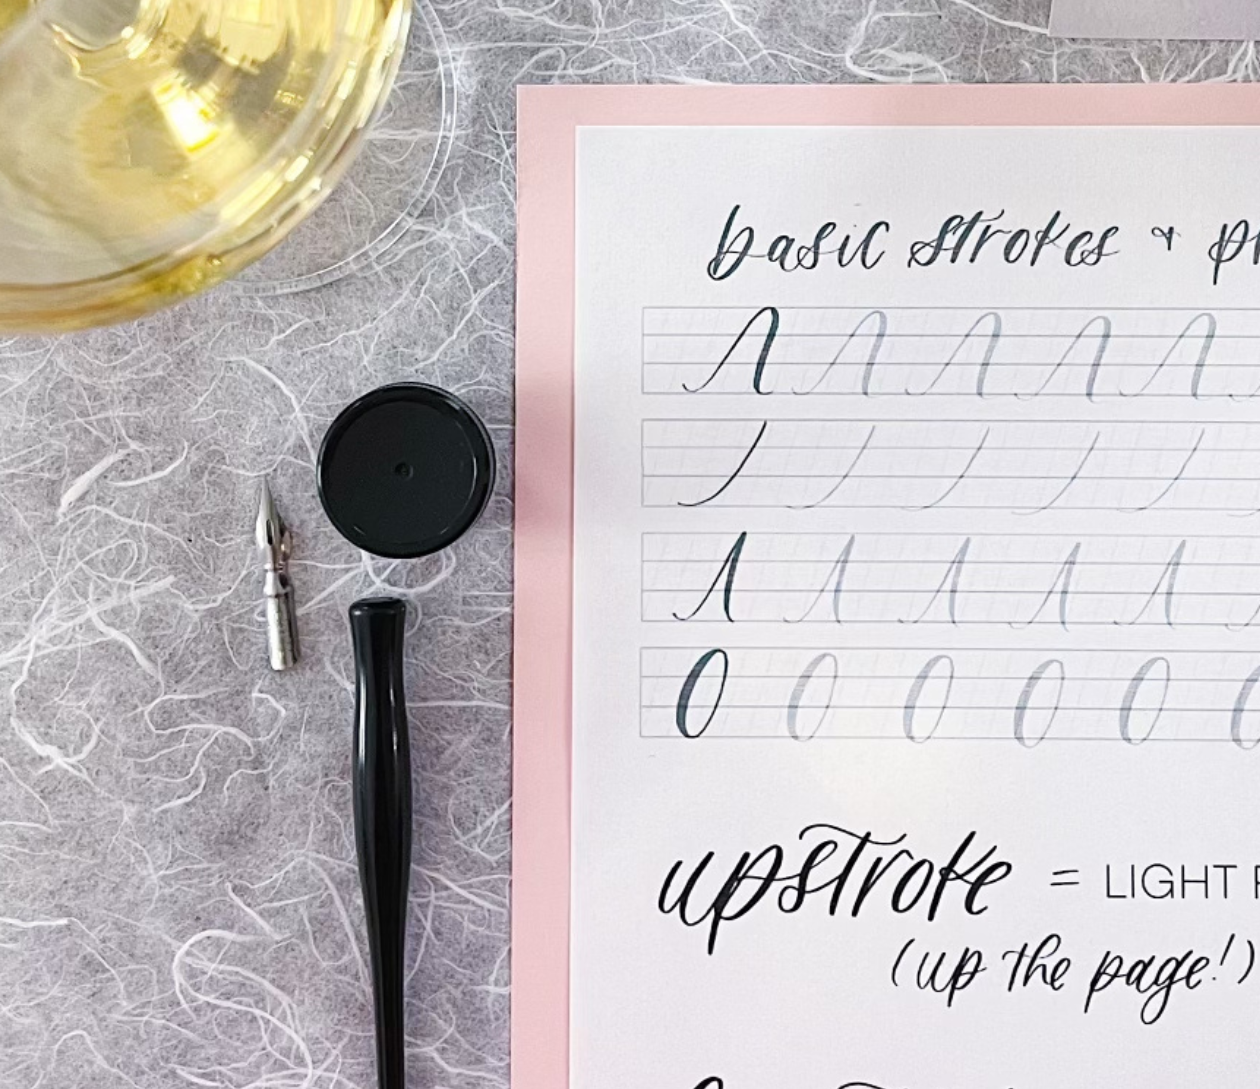 basic strokes +
upstroke = LIGHT
(up the page!)